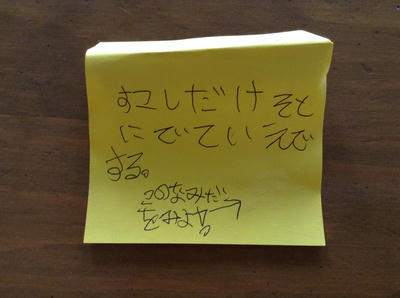 すこしだけそと
にでていえで
する。
このなみだ
をみよ！→